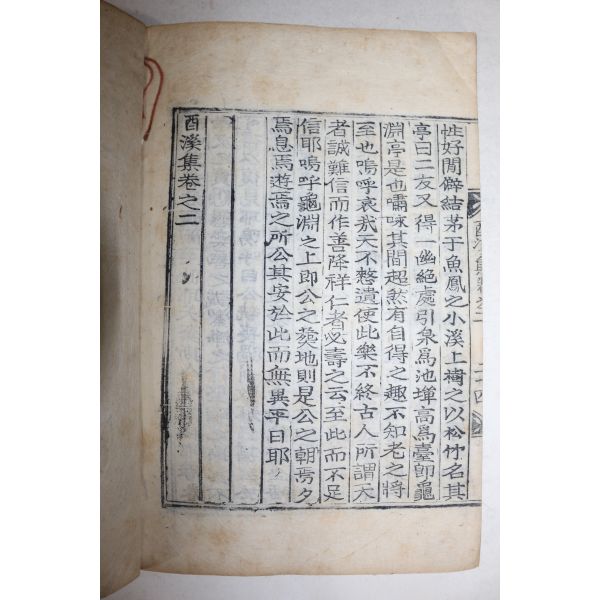 酉溪集卷之二 二十四
性好閒僻結茅于魚鳳之小溪上樹之以松竹名其
亭曰二友又得一幽絶處引泉爲池墠高爲臺卽龜
淵亭是也嘯咏其間超然有自得之趣不知老之將
至也嗚呼哀哉天不憗遺使此樂不終古人所謂天
者誠難信而作善降祥仁者必壽之云至此而不足
信耶嗚呼龜淵之上即公之葬地則是公之朝焉夕
焉息焉遊焉之所公其安於此而無異平日耶
酉溪集卷之二